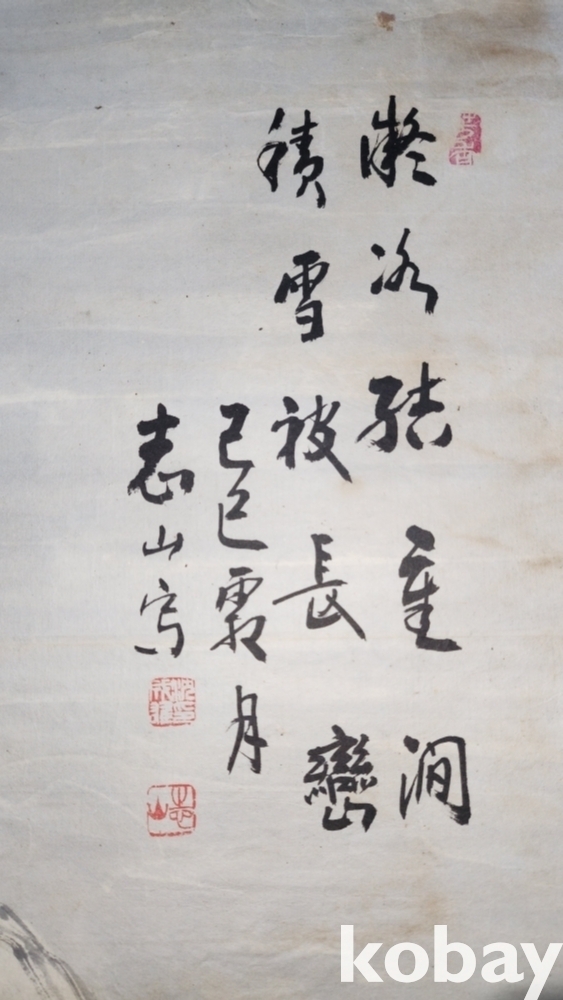 凝冰結重澗
積雪被長巒
己巳霜月
志山寫
志山
kobay